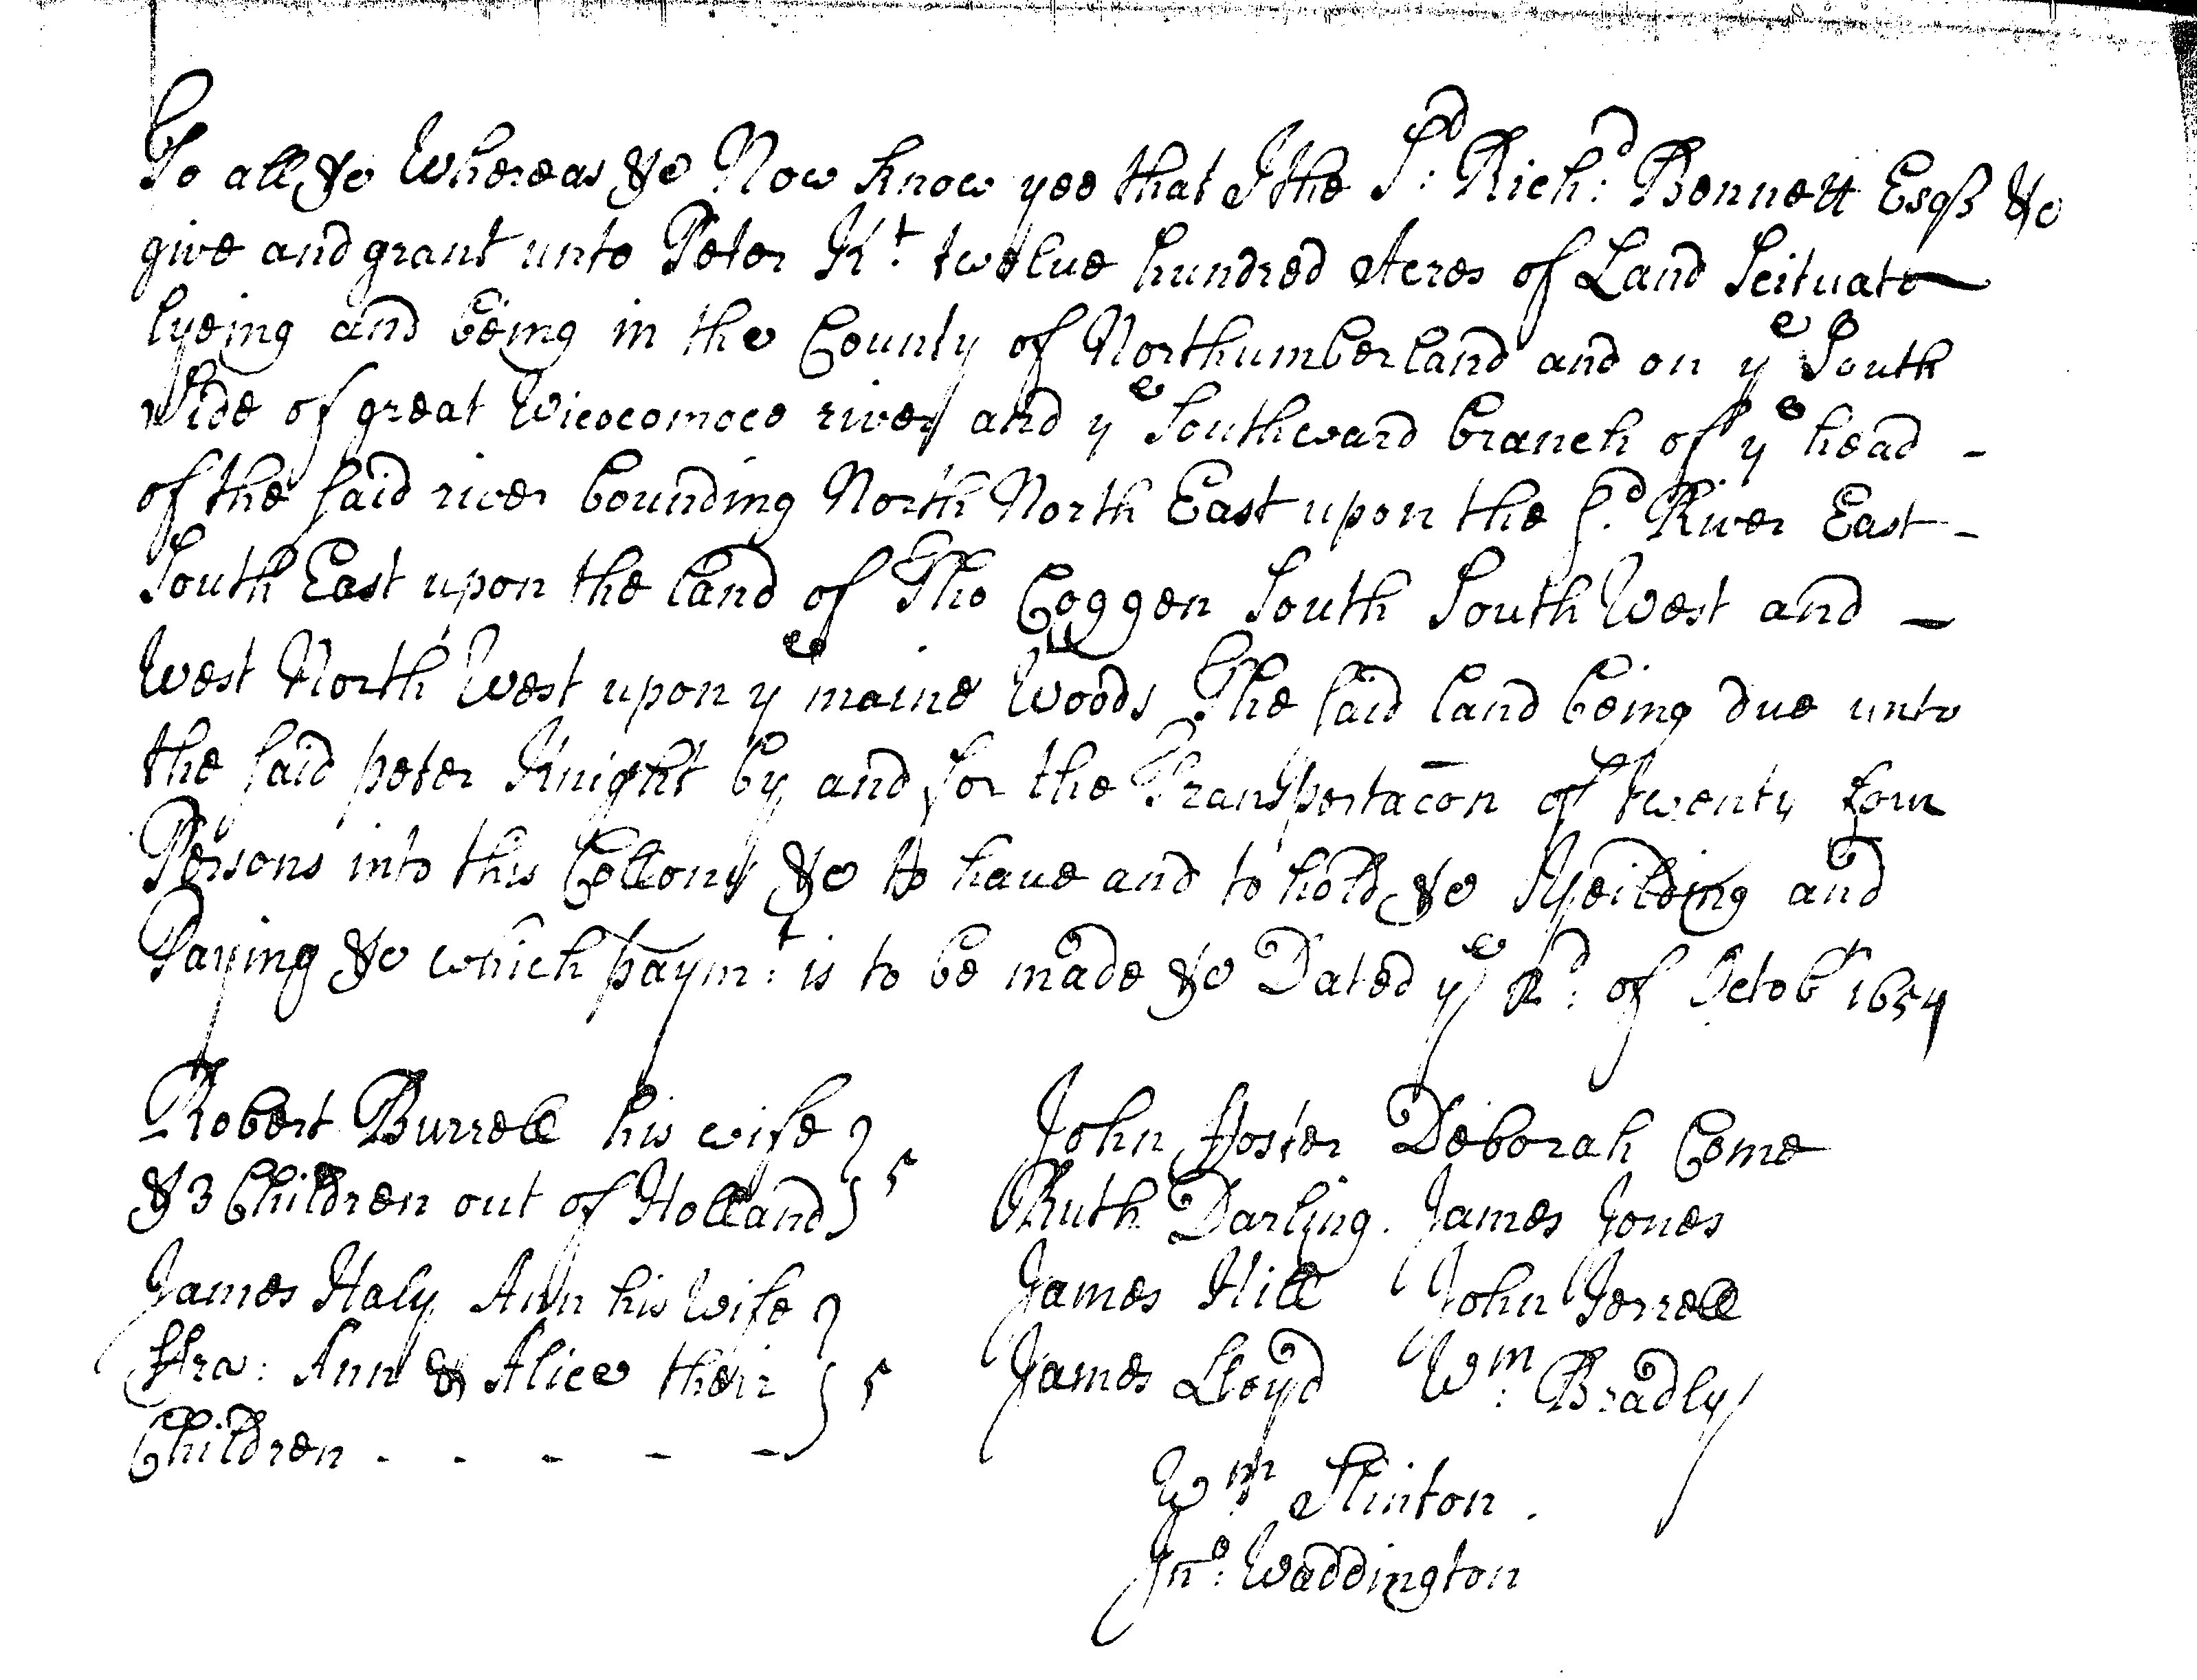 To all &c Whereas &c Now Know yee that I the Sd: Richd: Bennett Esqr &c
give and grant unto Peter Kt: twelve hundred Acres of Land Scituate
lyeing and being in the County of Northumberland and on ye South
side of great Wicocomoco river and ye Southward branch of ye head -
of the said river bounding North North East upon the sd: River East -
South East upon the land of Tho Coggen South South West and -
West North West upon ye maine Woods The said land being due unto
the said peter Knight by and for the Transportacon of twenty four
Persons into this Collony &c to have and to hold &c Yeilding and
Paying &c which paymt: is to be made &c Dated ye 2d: of Octobr 1654
Robert Burrell his wife
& 3 Children out of Holland } 5
James Haly Ann his Wife
ffra: Ann & Alice their } 5
Children - - - - -
John ffoster Deborah Come
Ruth Darling. James Jones
James Hill John Jerrell
James Lloyd Wm: Bradly
Wm: Flinton.
Jno: Waddington